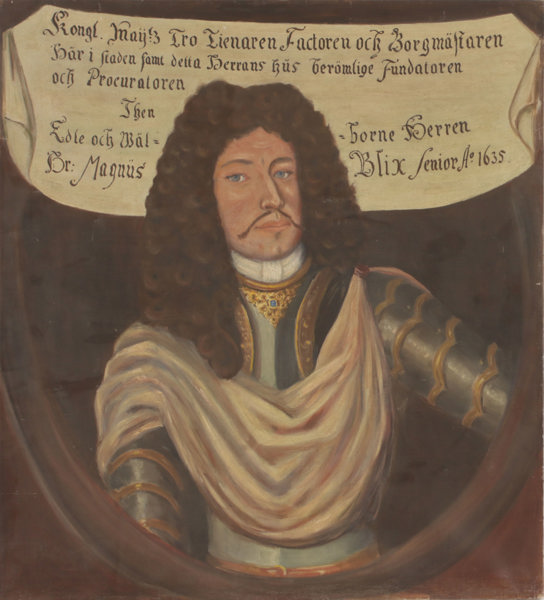 Kongl. Maÿtz Tro Tienaren Factoren och Borgmästaren
Här i staden samt detta Herrans hüs berömlige Fundatoren
och Procuratoren
Then
Edle och Wäl- -borne Herren
Hr: Magnüs Blix Senior. Aº 1635.